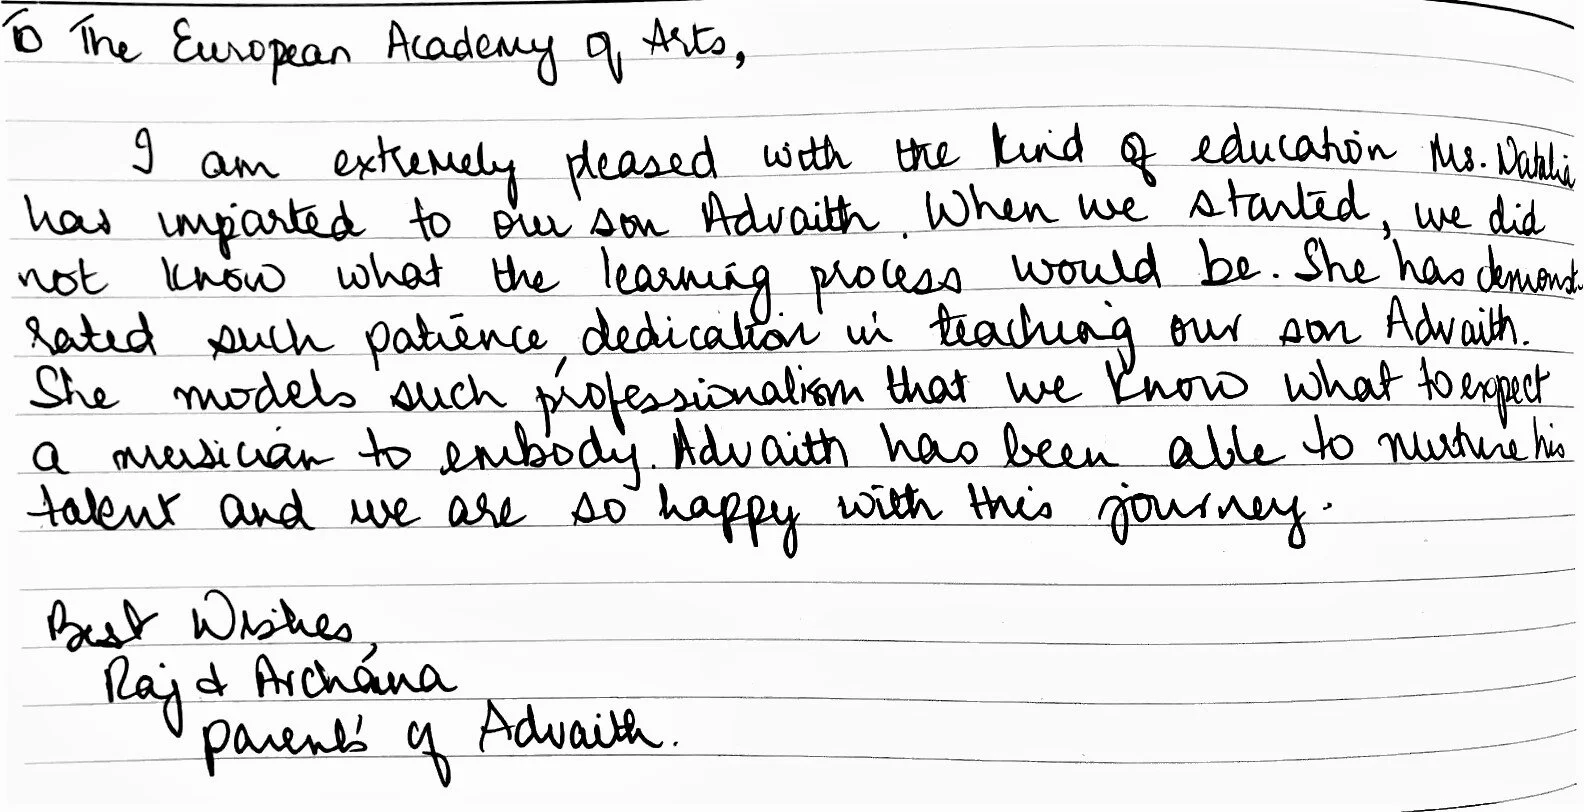 To The European Academy of Arts,
I am extremely pleased with the kind of education Ms. Natalia
has imparted to our son Advaith. When we started, we did
not know what the learning process would be. She has demonst-
rated such patience, dedication in teaching our son Advaith.
She models such professionalism that we know what to expect
a musician to embody. Advaith has been able to nurture his
talent and we are so happy with this journey.
Best Wishes,
Raj & Archana
parents of Advaith.